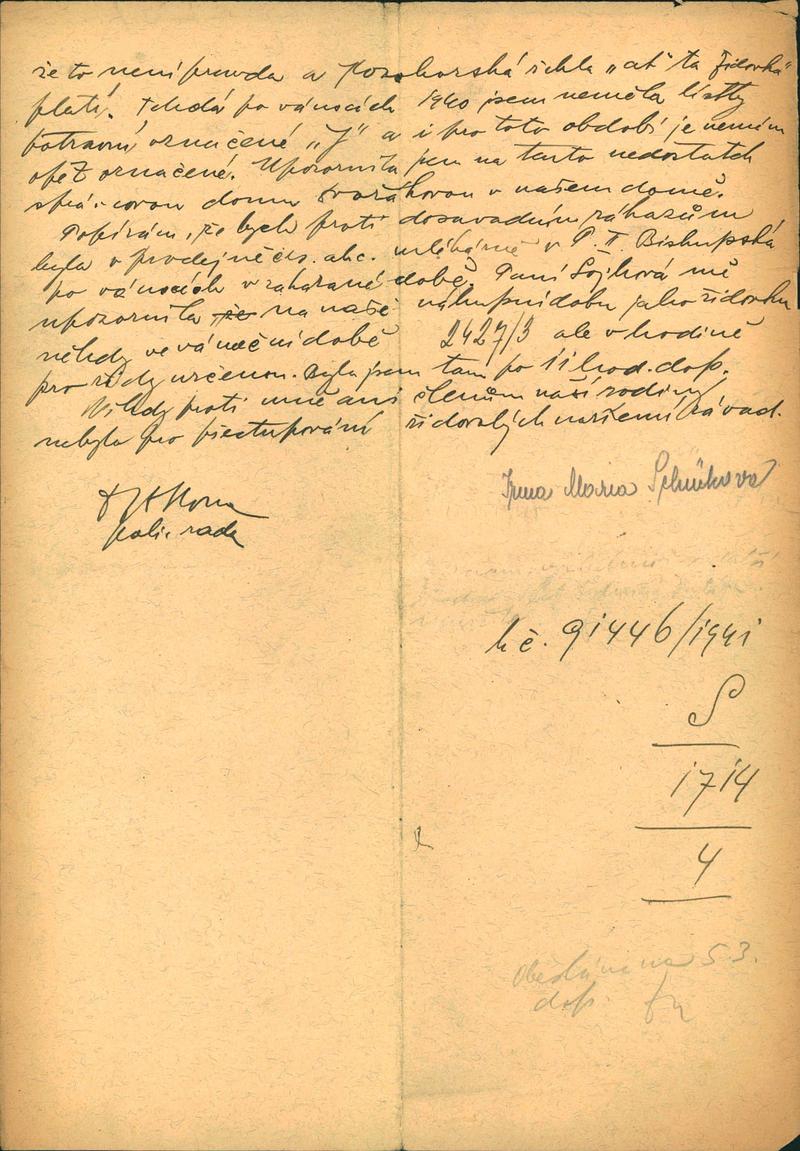 že to není pravda a Pozohorská řekla „ať ta židovka"
platí. Tehdá po vánocích 1940 jsem neměla lístky
potravní označené „J" a i pro toto období je nemám
opět označené. Upozornila jsem na tento nedostatek
domu Dvořákovou v našem domě.
Popírám, že bych proti dosavadním zákazům
byla v prodejně čs. akc. mlékárně v P. II. Biskupská
po vánocích v zakázané době. Paní Šojková mě
upozornila že na naše nákupní dobu jako židovku
někdy ve vánoční době 2427/3 ale v hodině
pro židy určenou. Byla jsem tam po 11 hod. dop.
Nikdy proti mně ani členům naší rodiny
nebylo pro přestupování židovských nařízení závad.
Irma Maria
poli. rada
k č. 91446/1941
S
1714
4
na 5.3.
dop.